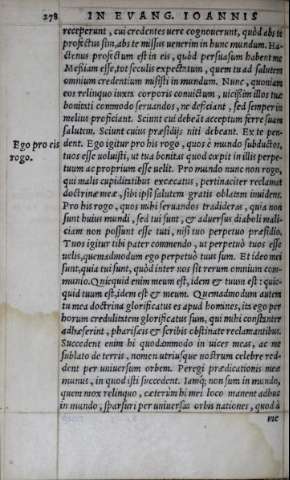 278 IN EVANG. IOANNIS
receperunt, cui credentes uere cognouerunt, quòd abs te
profectus sim, abs te missus uenerim in hunc mundum. Ha-
ctenus profectum est in eis, quòd persuasum habent me
Messiam esse, tot seculis expectatum, quem tu ad salutem
omnium credentium misisti in mundum. Nunc, quoniam
eos relinquo iuxta corporis conuictum, uicissim illos tuæ
bonitati commodo seruandos, ne deficiant, sed semper in
melius proficiant. Sciunt cui debeāt acceptum ferre suam
salutem. Sciunt cuius præsidijs niti debeant. Ex te pen-
Ego pro eis rogo.
dent. Ego igitur pro his rogo, quos è mundo subductos,
tuos esse uoluisti, ut tua bonitas quod cœpit in illis perpe-
tuum ac proprium esse uelit. Pro mundo nunc non rogo,
qui malis cupiditatibus excæcatus, pertinaciter reclamat
doctrinæ meæ, sibi ipsi salutem gratis oblatam inuidens.
Pro his rogo, quos mihi seruandos tradideras, quia non
sunt huius mundi, sed tui sunt, & aduersus diaboli mali-
ciam non possunt esse tuti, nisi tuo perpetuo præsidio.
Tuos igitur tibi pater commendo, ut perpetuò tuos esse
uelis, quemadmodum ego perpetuò tuus sum. Et ideo mei
sunt, quia tui sunt, quòd inter nos sit rerum omnium com-
munio. Quicquid enim meum est, idem & tuum est: quic-
quid tuum est, idem est & meum. Quemadmodum autem
tu mea doctrina glorificatus es apud homines, ita ego per
horum credulitatem glorificatus sum, qui mihi constanter
adhæserint, pharisæis & scribis obstinate reclamantibus.
Succedent enim hi quodammodo in uices meas, ac me
sublato de terris, nomen utriusque nostrum celebre red-
dent per uniuersum orbem. Peregi prædicationis meæ
munus, in quod isti succedent. Iamq; non sum in mundo,
quem mox relinquo, cæterùm hi mei loco manent adhuc
in mundo, sparsuri per uniuersas orbis nationes, quod à
me